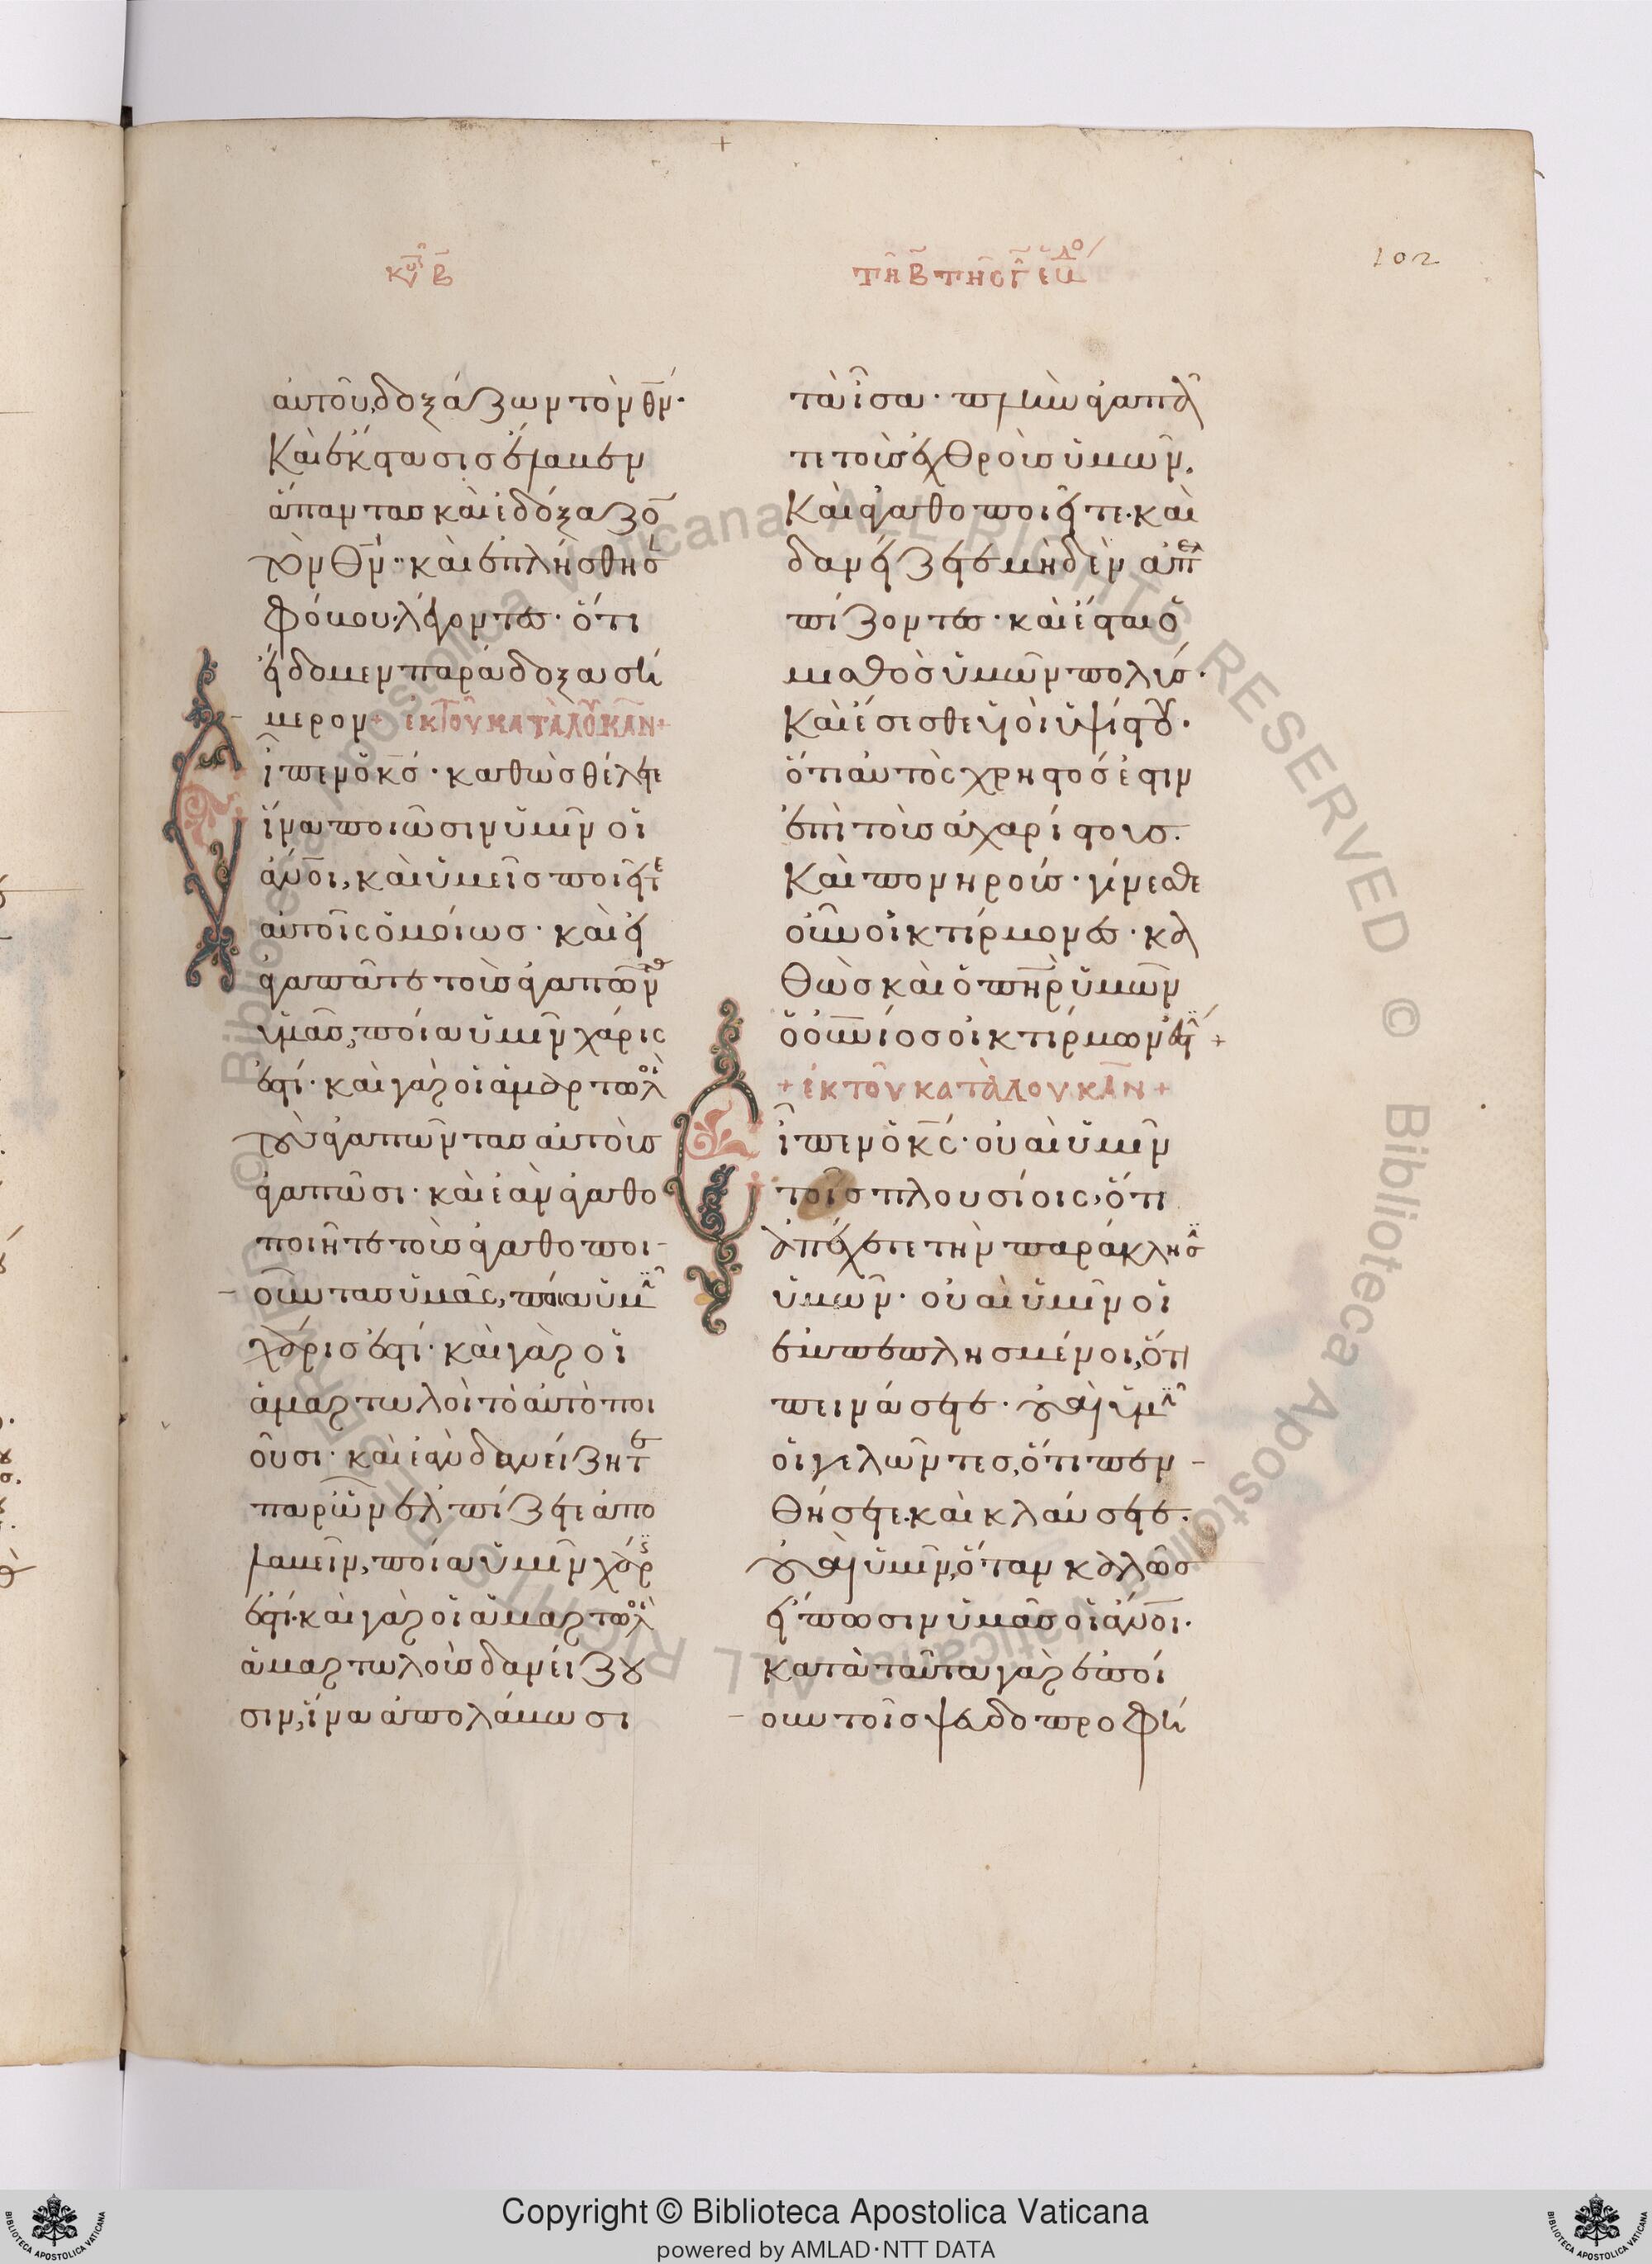 κυ β
τη β της γ εβδο
102
αὐτοῦ, δοξάζων τὸν θν·
Καὶ ἔκστασις ἔλαβεν
ἅπαντας καὶ ἐδόξαζο
τὸν θν· καὶ ἐπλήσθησ
φόβου λέγοντες· ὅτι
εἴδομεν παράδοξα σή
μερον + ἐκ τοῦ κατὰ λουκαν +
Εἶπεν ὁ κς· καθὼς θέλετε
ἵνα ποιῶσιν ὑμῖν οἱ
ἄνοι, καὶ ὑμεῖς ποιεῖτε
αὐτοῖς ὁμοίως· καὶ εἰ
ἀγαπᾶτε τοὺς ἀγαπῶν
ὑμᾶς, ποία ὑμῖν χάρις
ἐστί· καὶ γὰρ οἱ ἁμαρτωλοὶ
τοὺς ἀγαπῶντας αὐτοὺς
ἀγαπῶσι· καὶ ἐὰν ἀγαθο
ποιῆτε τοὺς ἀγαθοποι
οῦντας ὑμᾶς, ποία ὑμῖν
χάρις ἐστί· καὶ γὰρ οἱ
ἁμαρτωλοὶ τὸ αὐτὸ ποι
οῦσι· καὶ ἐὰν δανείζητε
παρ' ὧν ἐλπίζετε ἀπο
λαβεῖν, ποία ὑμῖν χάρις
ἐστί· καὶ γὰρ οἱ ἁμαρτωλοὶ
ἁμαρτωλοῖς δανείζου
σιν, ἵνα ἀπολάβωσι
τὰ ἴσα· πλὴν ἀγαπᾶ
τε τοὺς ἐχθροὺς ὑμῶν.
Καὶ ἀγαθοποιεῖτε· καὶ
δανείζετε μηδὲν ἀπελ
πίζοντες· καὶ ἔσται ὁ
μισθὸς ὑμῶν πολύς·
Καὶ ἔσεσθε υἱοὶ ὑψίστου·
ὅτι αὐτὸς χρηστός ἐστιν
ἐπὶ τοὺς ἀχαρίστους.
Καὶ πονηρούς· γίνεσθε
οὖν οἰκτίρμονες· κα
θὼς καὶ ὁ πηρ ὑμῶν
ὁ οὐνιος οἰκτίρμων ἐστί +
+ ἐκ τοῦ κατὰ λουκαν +
Εἶπεν ὁ κς· οὐαὶ ὑμῖν
τοῖς πλουσίοις, ὅτι
ἀπέχετε τὴν παράκλησιν
ὑμῶν· οὐαὶ ὑμῖν οἱ
ἐμπεπλησμένοι, ὅτι
πεινάσετε· οὐαὶ ὑμῖν
οἱ γελῶντες, ὅτι πεν
θήσετε καὶ κλαύσετε·
οὐαὶ ὑμῖν, ὅταν καλῶς
εἴπωσιν ὑμᾶς οἱ ἄνοι·
κατὰ ταῦτα γὰρ ἐποί
ουν τοῖς ψευδοπροφή
Copyright © Biblioteca Apostolica Vaticana
powered by AMLAD·NTT DATA